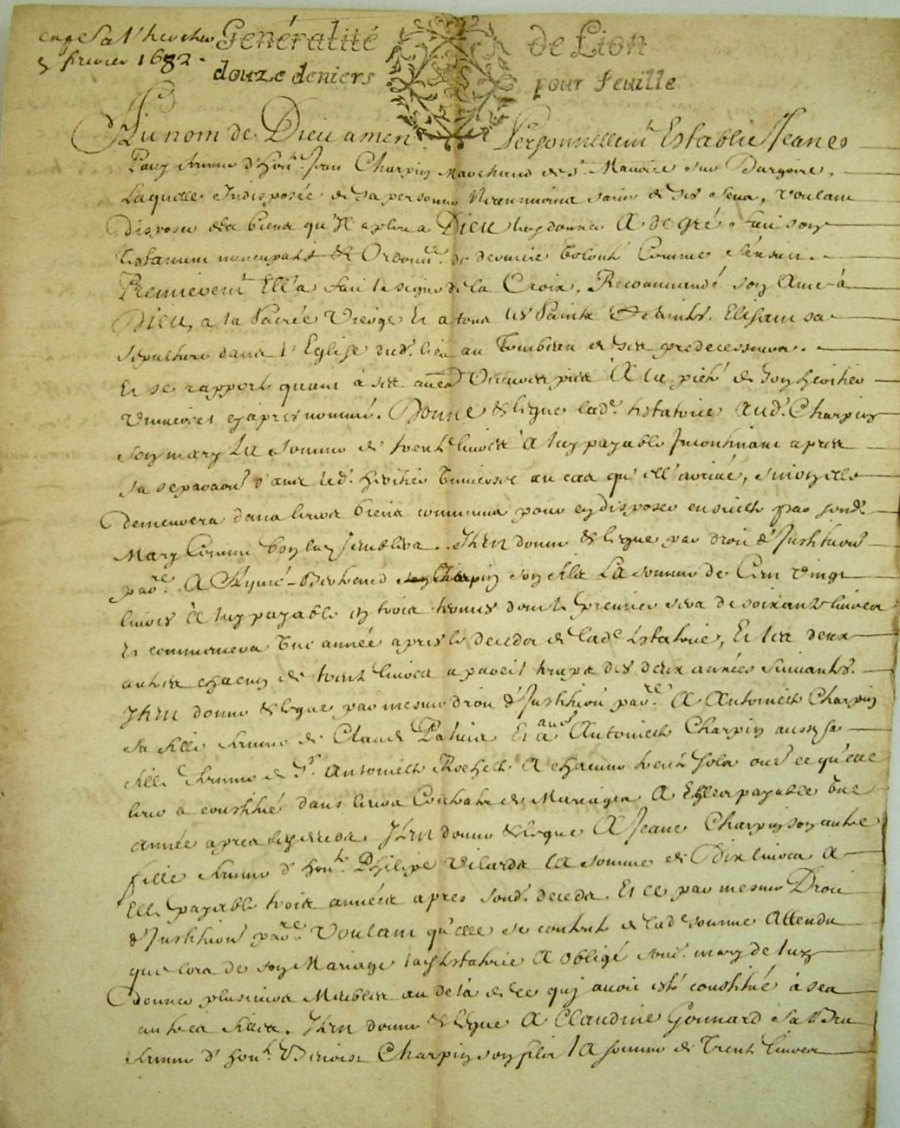 5 février 1682.
Generalité de Lion
douze deniers pour feuille
Au nom de Dieu amen Personnellemt Establie Jeanne
femme d'Honle Jean Charpin Marchand de St Maurice sur Dargoire,
Laquelle Indisposée de sa personne Neanmoins saine de ses sens, voulant
Disposer des biens qu'il a pleu a DIEU luy donner A de gré fait son
Testament noncupatif et Ordonnce de derniere volonté Comme s'ensuit.
Premierent Ell'a fait le signe de la Croix, Recommandé son Ame à
DIEU, a la Sacrée Vierge Et a tous les Saints et Saintes. Elisant sa
sepulture dans l'Eglise dudt lieu au Tombeau de ses predecesseurs.
Et se rapporte quant à ses autres Oeuvres pies A la pieté de son heritier
universel cy apres nommé. Donne et legue lade testatrice audt Charpin
son mary La somme de trente livres A luy payable Incontinant apres
sa separaon d'avec ledt heritier universel au cas qu'ell'arrive, sinon elle
demeurera dans leurs biens communs pour en disposer ensuitte par sondt
Mary Comme bon luy semblera. Item donne et legue par droit d'Institution
parle A Charpin son fils La somme de Cent vingt
livres A luy payable en trois termes dont le premier sera de soixante livres
Et commencera une année apres le deceds de lade testatrice, Et les deux
autres chacun de trente livres a pareil temps des deux années suivantes.
Item donne et legue par mesme droit d'Institution parle A Antoinette Charpin
sa fille femme de Claude Et a Antoinette Charpin aussy sa
fille femme de Sr Antoinett A chacune trente sols outre ce qu'elle
leur a constitué dans leurs Contrats de Mariages A Elles payable une
année apres led deceds. Item donne et legue A Jeane Charpin son autre
fille femme d'Honle Philipe Vilards La somme de Dix livres A
Elle payable trois années apres sondt deceds. Et ce par mesme Droit
d'Institution parle Voulant qu'elle se contente de lade somme Attendu
que lors de son Mariage lad testatrice A obligé sondt mary de luy
donner plusieurs Meubles au dela de ce qui avoit esté constitué à ses
autres filles. Item donne et legue A Claudine Gonnard sa Bru
femme d'Honle Benoist Charpin son fils La somme de Trente livres